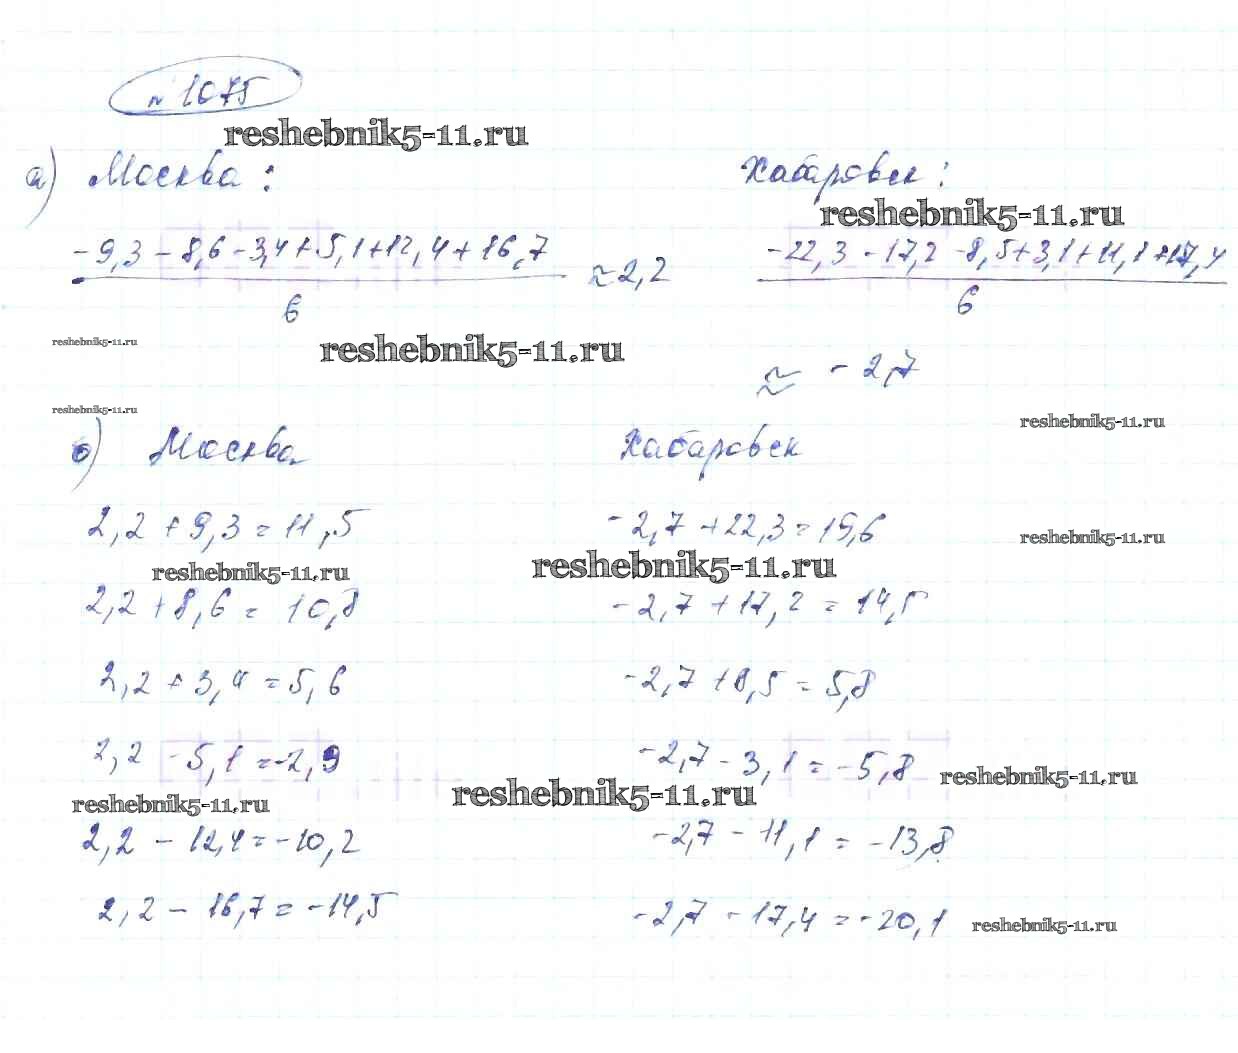 № 1075
reshebnik5-11.ru
а) Москва: Хабаровск:
reshebnik5-11.ru
-9,3 - 8,6 - 3,4 + 5,1 + 12,4 + 16,7 / 6 ≈ 2,2 -22,3 - 17,2 - 8,5 + 3,1 + 11,1 + 17,4 / 6
reshebnik5-11.ru reshebnik5-11.ru
≈ - 2,7
reshebnik5-11.ru reshebnik5-11.ru
б) Москва Хабаровск
2,2 + 9,3 = 11,5 -2,7 + 22,3 = 19,6
reshebnik5-11.ru
reshebnik5-11.ru reshebnik5-11.ru
2,2 + 8,6 = 10,8 -2,7 + 17,2 = 14,5
2,2 + 3,4 = 5,6 -2,7 + 8,5 = 5,8
2,2 - 5,1 = -2,9 -2,7 - 3,1 = -5,8
reshebnik5-11.ru
reshebnik5-11.ru reshebnik5-11.ru
2,2 - 12,4 = -10,2 -2,7 - 11,1 = -13,8
2,2 - 16,7 = -14,5 -2,7 - 17,4 = -20,1
reshebnik5-11.ru